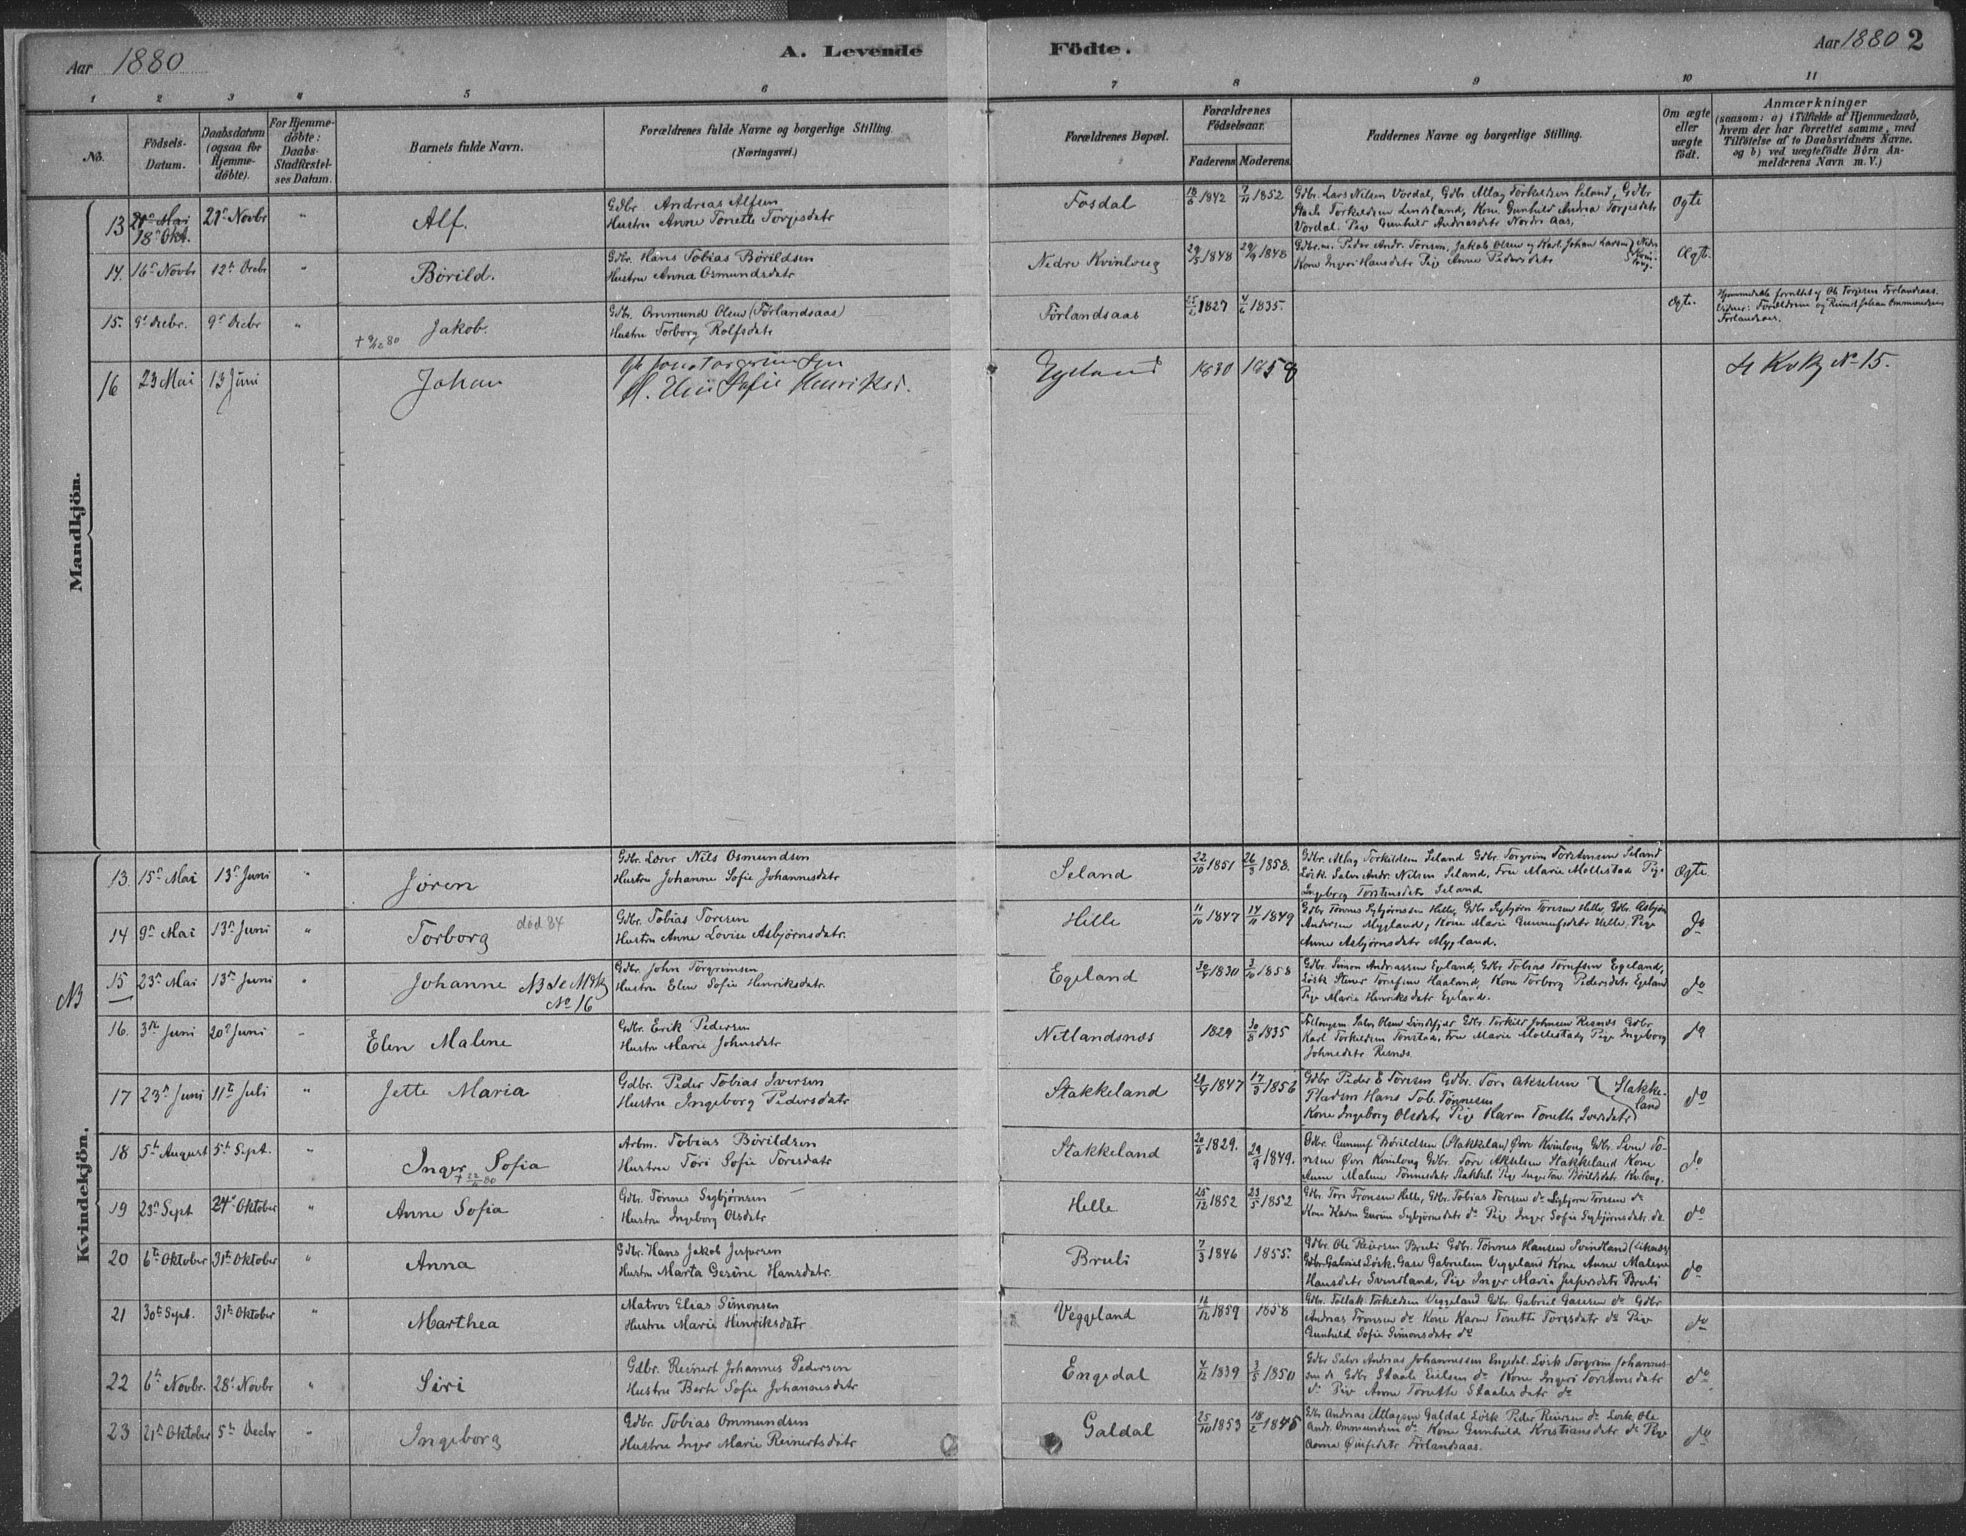 Aar 1880
A. Levende
Födte.
Aar 1880 2
1 2 3 4 5 6 7 8 9 10 11
No.
Födsels-Datum.
Daabsdatum (ogsaa for Hjemmedöbte).
For Hjemmedöbte: Daabs-Stadfæstelses Datum.
Barnets fulde Navn.
Forældrenes fulde Navne og borgerlige Stilling.
(Næringsvei.)
Forældrenes Bopæl.
Forældrenes Födselsaar.
Faderens. Moderens.
Faddernes Navne og borgerlige Stilling.
Om ægte eller uægte födt.
Anmærkninger
(saasom: a) i Tilfælde af Hjemmedaab, hvem der har forrettet samme, med Tilföielse af to Daabsvidners Navne, og b) ved uægtefödte Börn Anmelderens Navn m. V.)
Mandkjön.
13 21de Mai 18de Okt. 21de Novbr " Alf. Gdbr Andreas Alfsen
Hustru Anne Tonette Torgjesdatr Fosdal 1842 7/11 1852 Gdbr. Lars Nilsen Vordal, Gdbr Atlag Torkildsen Seland, Gdbr
Torkildsen Lindsland, Kone Gunhild Andrea Torgesdatr
Vordal. Pige Gunhild Andreasdatr Nordre Aas. Ægte
14. 16de Novbr 12te Decbr " Börild. Gdbr. Hans Tobias Börildsen
Hustru Anna Osmundsdatr Nedre Kvinlaug 29/5 1848 29/9 1848 Gdbr.m. Peder Andr. Tonesen, Jakob Olsen og Karl Johan Larsen
Kone Ingeri Hansdatr Pige Anne Pedersdatr Nedre Kvinlaug. Ægt.
15. 9de Decbr. 9de Decbr " Jakob. + 9/12 80 Gdbr. Ommund Olsen (Förlandsaas)
Hustru Torborg Rolfsdatr Förlandsaas 1827 4/6 1835. Ægte. Hjemmedöbt forrettet af Ole Torjesen Förlandsaas.
Vidner: Forældrene og Reinert Johan Ommundsen
Förlandsaas.
16 23 Mai 13 Juni Johan
H. Sofie Henriksd. Egeland 1830 1858 No 15.
Kvindekjön.
13 15de Mai 13de Juni " Jören Gdbr. Lærer Nils Osmundsen
Hustru Johanne Sofie Johannesdatr Seland 22/10 1851 26/3 1858. Gdbr. Atlag Torkildsen Seland Gdbr. Torgrim Torstensen Seland
Lösk. Salve Andr. Nilsen Seland, Fru Marie Mollestad Pige
Ingeborg Torstensdatr Seland Ægte.
14 9de Mai 13de Juni " Torborg död 84 Gdbr. Tobias Toresen
Hustru Anne Lovise Asbjörnsdatr. Hille 11/10 1847 14/11 1849 Gdbr Tönnes Sigbjörnsen Hille, Gdbr Sigbjörn Toresen Hille, Gdbr. Asbjörn
Andersen Mygland, Kone Marie Gunnufsdatr Helle Pige
Anne Asbjörnsdatr Mygland. do
NB
15 23de Mai 13de Juni " Johanne NB Se
No 16 Gdbr. John Torgrimsen
Hustru Elen Sofie Henriksdatr. Egeland 30/4 1830 3/10 1858 Gdbr. Simon Andreassen Egeland, Gdbr Tobias Torufsen Egeland,
Lösk Stener Tonesen Haaland, Kone Torborg Pedersdatr Egeland
Pige Marie Henriksdatr Egeland. do
16. 3die Juni 20de Juni - Elen Malene Gdbr. Erik Pedersen
Hustru Marie Johnsdatr Netlandsnes 1829 10/8 1835 Salve Olsen Lindefjeld Gdbr. Torkild Johnsen Resnes Gdbr
Karl Torkildsen Tonstad, Fru Marie Mollestad, Pige Ingeborg
Johnsdatr Resnes. do
17 23de Juni 11te Juli " Jette Maria Gdbr. Peder Tobias Iversen
Hustru Ingeborg Pedersdatr Stakkeland 29/4 1847 17/3 1856 Gdbr Peder E Toresen Gdbr. Tore Akselsen
Pladsm Hans Tob. Tönnesen
Kone Ingeborg Olsdatr Pige Karen Tonette Iversdatr Stakkeland do
18 5te August 5te Sept. " Inger Sofia + 80 Arbm. Tobias Börildsen
Hustru Tori Sofie Toresdatr Stakkeland 20/6 1829. 29/9 1849. Gdbr. Gunnuf Börildsen (Stakkelan) Övre Kvinlong Gdbr. Sven To-
resen Övre Kvinlong Gdbr. Tore Akselsen Stakkeland Kone
Anne Malene Tönnesdatr Stakkel. Pige Inger Ton. Börildsdatr Kv.long. do
19 23de Sept 24de Oktober " Anne Sofia Gdbr. Tönnes Sigbjörnsen
Hustru Ingeborg Olsdatr Helle 25/12 1852 23/5 1852 Gdbr. Tore Tronsen Helle, Gdbr. Tobias Toresen do Sigbjörn Toresen do
Kone Karen Gurine Sigbjörnsdatr do Pige Inger Sofie Sigbjörnsdatr. do do
20 6te Oktober 31te Oktober " Anna Gdbr. Hans Jakob Jespersen
Hustru Marta Gesine Hansdatr. Bruli 7/3 1846 1855. Gdbr. Ole Reiersen Bruli Gdbr. Tönnes Hansen Svindland (Liknes)
Gdbr Gabriel Lösk. Gase Gabrielsen Veggeland Kone Anne Malene
Hansdatr Svindland, Pige Inger Maria Jespersdatr Bruli do
21 30te Sept. 31te Oktober " Marthea Matros Elias Simonsen
Hustru Marie Henriksdatr. Veggeland 11/12 1859 1858 Gdbr. Tollak Torkildsen Veggeland Gdbr Gabriel Gasesen do Gdbr
Andreas Tronsen do Kone Karen Tonette Toresdatr do Pige
Gunhild Sofie Simonsdatr do do
22 6te Novbr. 28de Novbr " Siri Gdbr. Reinert Johannes Pedersen
Hustru Berte Sofie Johannesdatr Engedal 4/12 1839 3/5 1850 Gdbr Salve Andreas Johannessen Engedal. Lösk Torgrim Johannes
sen do Gdbr Staale Eielsen do Kone Ingeri Torstensdatr
do Pige Anne Tonette Staalesdatr do do
23 21de Oktober 5te Decbr " Ingeborg Gdbr. Tobias Ommundsen
Hustru Inger Marie Reinertsdatr Galdal 25/10 1853 18/2 1845 Gdbr Andreas Atlagsen Galdal Lösk Peder Reiersen do Lösk. Ole
Andr. Ommundsen do Kone Gunhild Kristiansdatr do Pige
Anna Förlandsaas. do